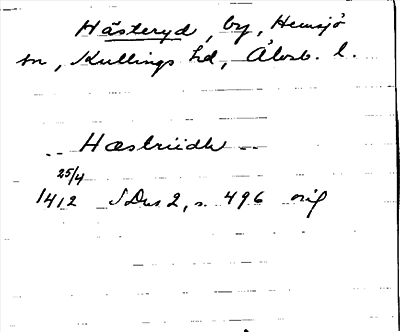 Hästeryd, by, Hemsjö
sn, Kullings hd, Älvsb. l.
-- Hæstriidh --
25/4
1412 SDns 2, s. 496 orig